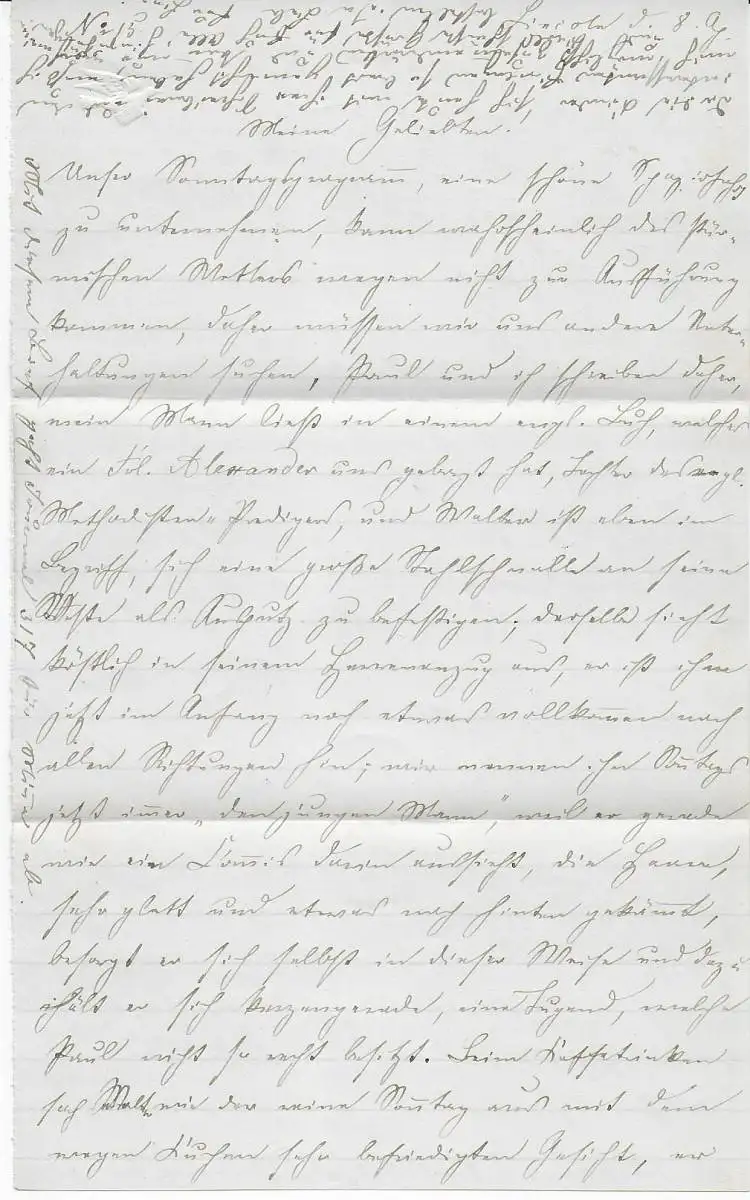 d. 8. A
Meine Geliebten.
Unser Sonntagsprogramm, eine schöne Spazierfahrt
zu unternehmen, kann wahrscheinlich des stür-
mischen Wetters wegen nicht zur Ausführung
kommen, daher müssen wir uns andere Unter-
haltungen suchen, Paul und ich schreiben daher,
mein Mann ließt in einem engl. Buch, welches
ein Frl. Alexander uns geborgt hat, Tochter des engl.
Methodisten-Predigers, und Walter ist eben im
Begriff, sich eine große Stahlschnalle an seine
Weste als Ausputz zu befestigen; derselbe sieht
köstlich in seinem Herrenanzug aus, er ist ihm
jetzt im Anfang noch etwas vollkommen nach
allen Richtungen hin; wir nennen ihn Sonntags
jetzt immer „den jungen Mann", weil er gerade
wie ein Commis darin aussieht, die Haare,
sehr glatt und etwas nach hinten gekämmt,
besorgt er sich selbst in dieser Weise und dazu
hält er sich kerzengerade, eine Tugend, welche
Paul nicht so recht besitzt. Beim Kaffetrinken
sah Walter wie der reine Sonntag aus mit dem
wegen Kuchen sehr befriedigten Gesicht, er
Mit diesem Brief geht Journal 317 ab.